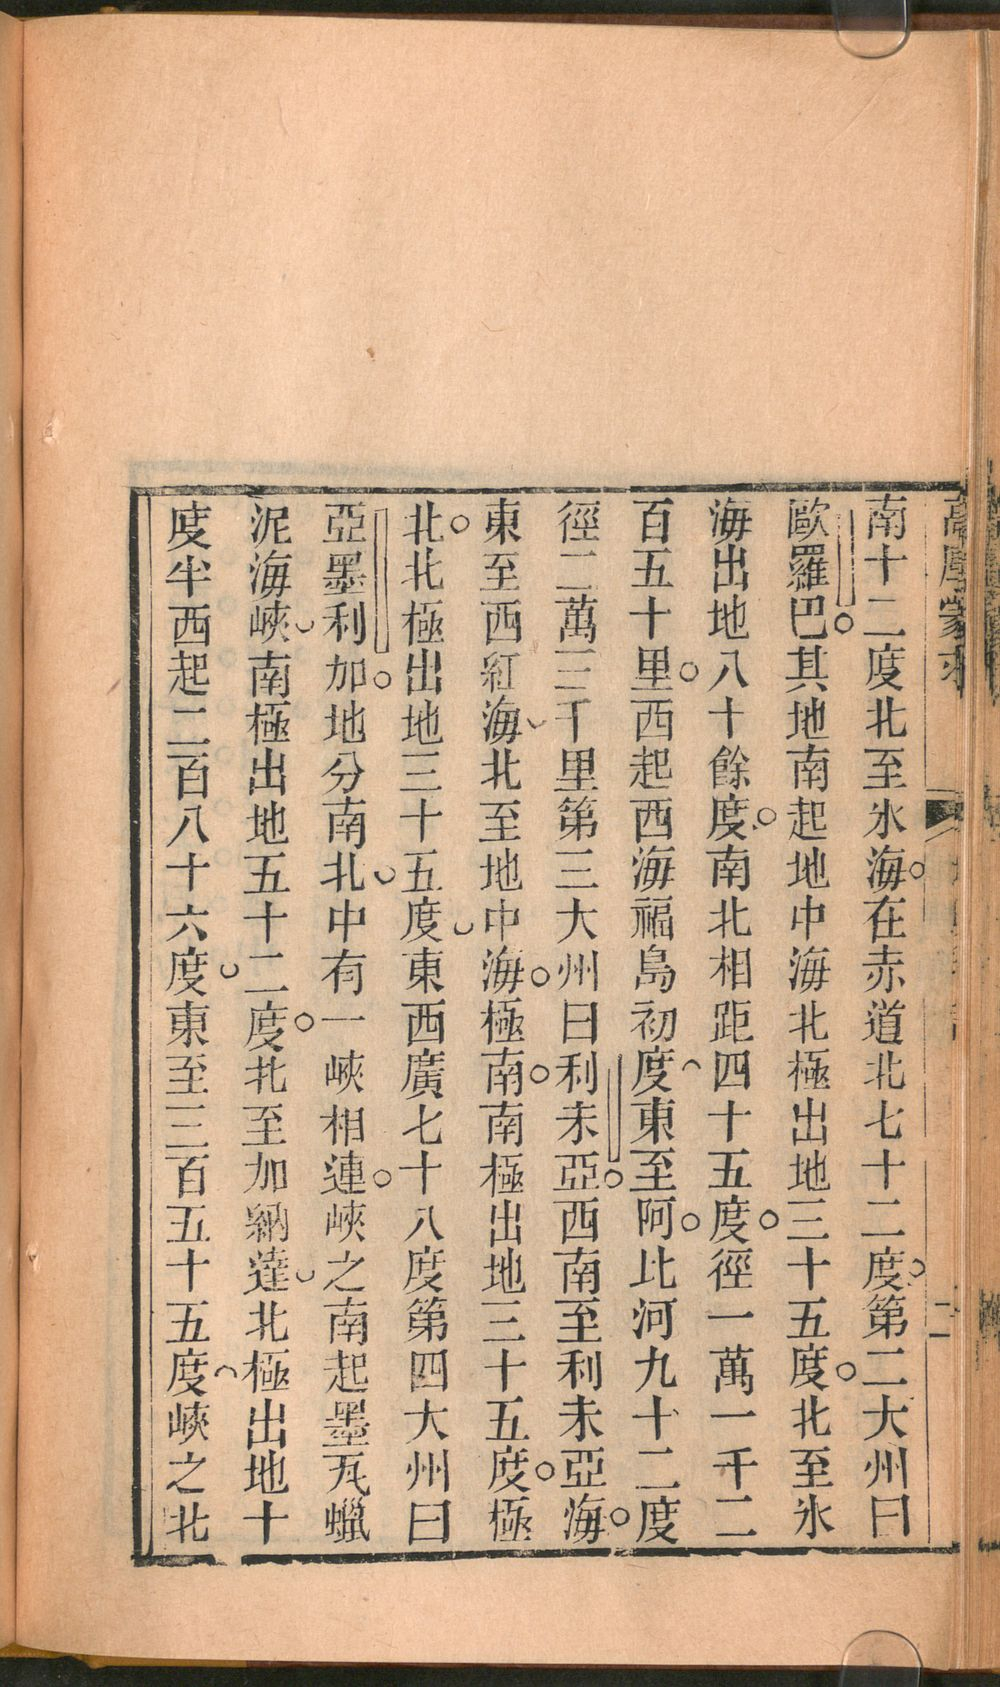 南十二度北至氷海在赤道北七十二度第二大州曰
歐羅巴其地南起地中海北極出地三十五度北至氷
海出地八十餘度南北相距四十五度徑一萬一千二
百五十里西起西海福島初度東至阿比河九十二度
徑二萬三千里第三大州曰利未亞西南至利未亞海
東至西紅海北至地中海極南南極出地三十五度極
北北極出地三十五度東西廣七十八度第四大州曰
亞墨利加地分南北中有一峽相連峽之南起墨瓦蠟
泥海峽南極出地五十二度北至加納達北極出地十
度半西起二百八十六度東至三百五十五度峽之北